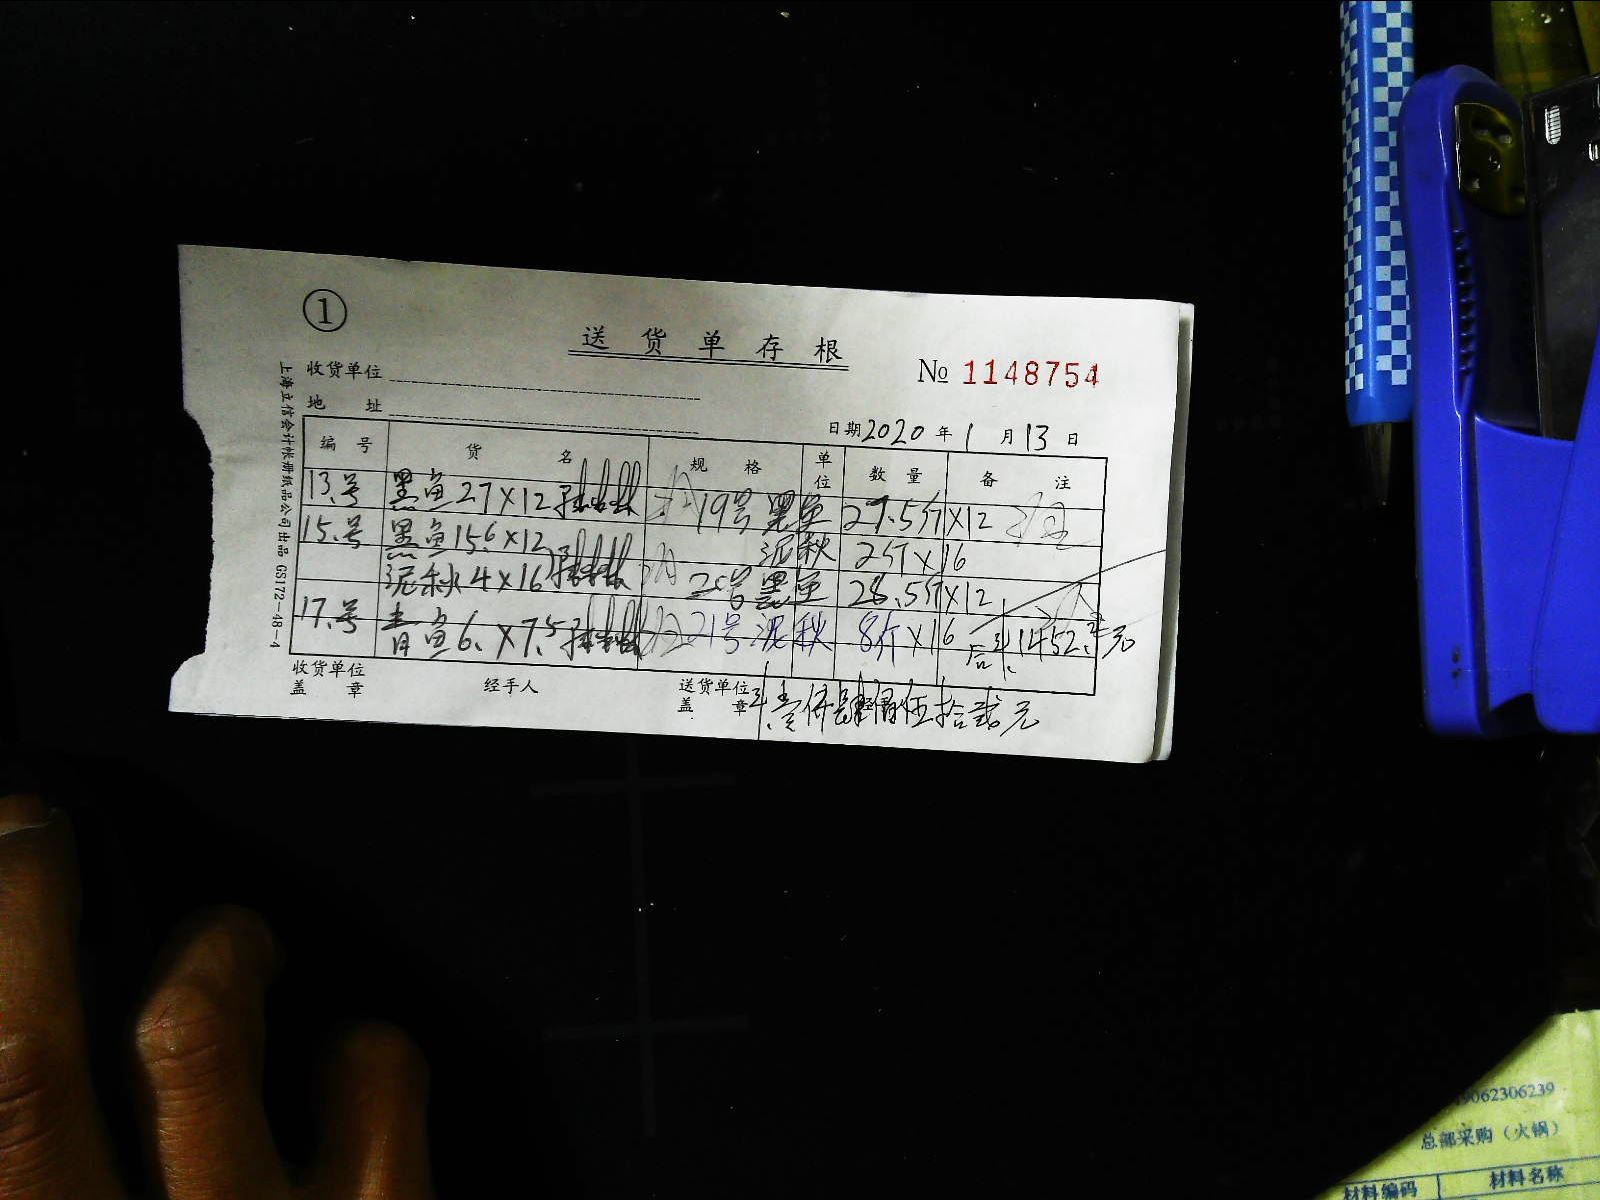 ①
送货单存根
№ 1148754
收货单位
地 址
日期 2020 年 1 月 13 日
编 号 货 名 规 格 单位 数 量 备 注
13号 黑鱼27×12 19号 黑鱼 27.5斤×12
15号 黑鱼15.6×12 泥秋 2斤×16
泥秋4×16 20号 黑鱼 28.5斤×12
17号 青鱼6.×7.5 21号 泥秋 8斤×16
1452.元
收货单位盖 章 经手人 送货单位盖 章
壹仟肆佰伍拾贰元
上海立信会计帐册纸品公司出品 GS172-48-4
9062306239
总部采购（火锅）
材料编码 材料名称